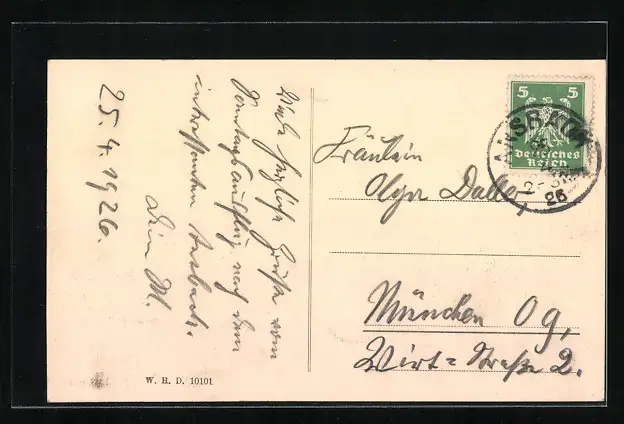 Viele herzliche Grüße vom
Sonntagsausflug nach dem
interessanten Ansbach.
Dein M.
25.4.1926.
Fräulein
Olga Dalla,
München
Wirt=Straße 2.
5 5
Deutsches
Reich
ANSBACH
26
W. H. D. 10101